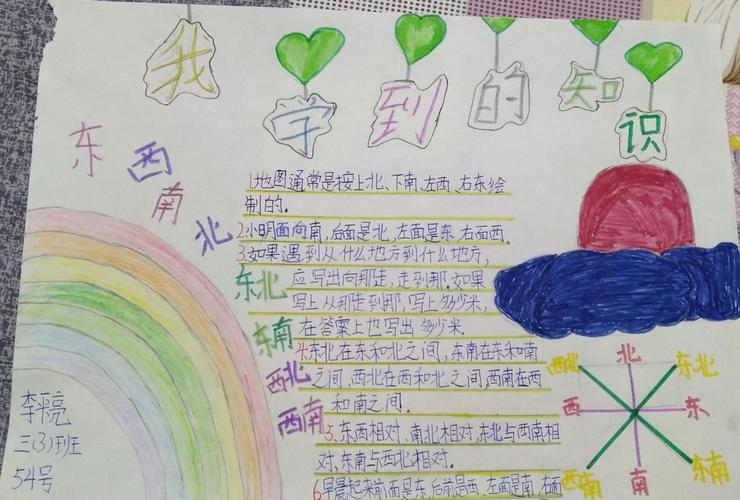 我学到的知识
东西南北
1.地图通常是按上北、下南、左西、右东绘
制的.
2.小明面向南,后面是北,左面是东,右面西.
3.如果遇到从什么地方到什么地方,
应写出向那走,走到那.如果
写上从那走到那,写上多少米,
在答案上也写出多少米.
4.东北在东和北之间,东南在东和南
之间,西北在西和北之间,西南在西
和南之间.
5.东西相对,南北相对,东北与西南相
对,东南与西北相对.
6早晨起来前面是东,后前是西,左面是南,右面
东北
东南
西北
西南
李平亮
三(3)班
54号
西北 北 东北
西 东
西南 南 东南